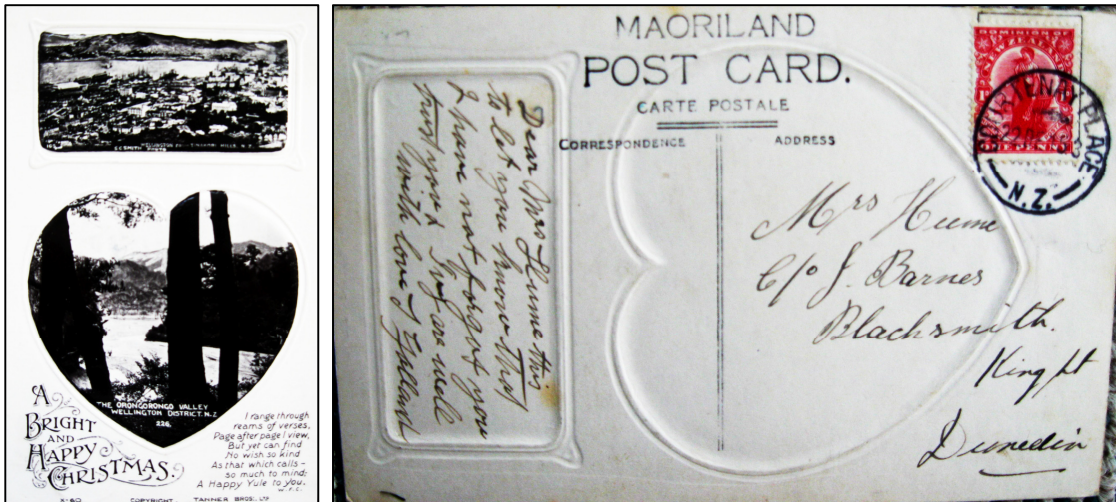 S.C. SMITH
PHOTO
WELLINGTON FROM TINAKORI HILLS, N.Z.
THE ORONGORONGO VALLEY
WELLINGTON DISTRICT. N.Z
226.
A
BRIGHT
AND
HAPPY
CHRISTMAS.
I range through
reams of verses,
Page after page I view,
But yet can find
No wish so kind
As that which calls –
so much to mind:
A Happy Yule to you.
W.F.C.
X-60 COPYRIGHT TANNER BROS., LTD
MAORILAND
POST CARD.
CARTE POSTALE
CORRESPONDENCE
ADDRESS
Dear Mrs Hume this
to let you know that
I have not forgot you
trust you & Ivy are well
with love J
DOMINION OF
NEW ZEALAND
ONE PENNY
COURTENAY PLACE
N.Z.
Mrs Hume
C/o J. Barnes
Blacksmith.
King St
Dunedin